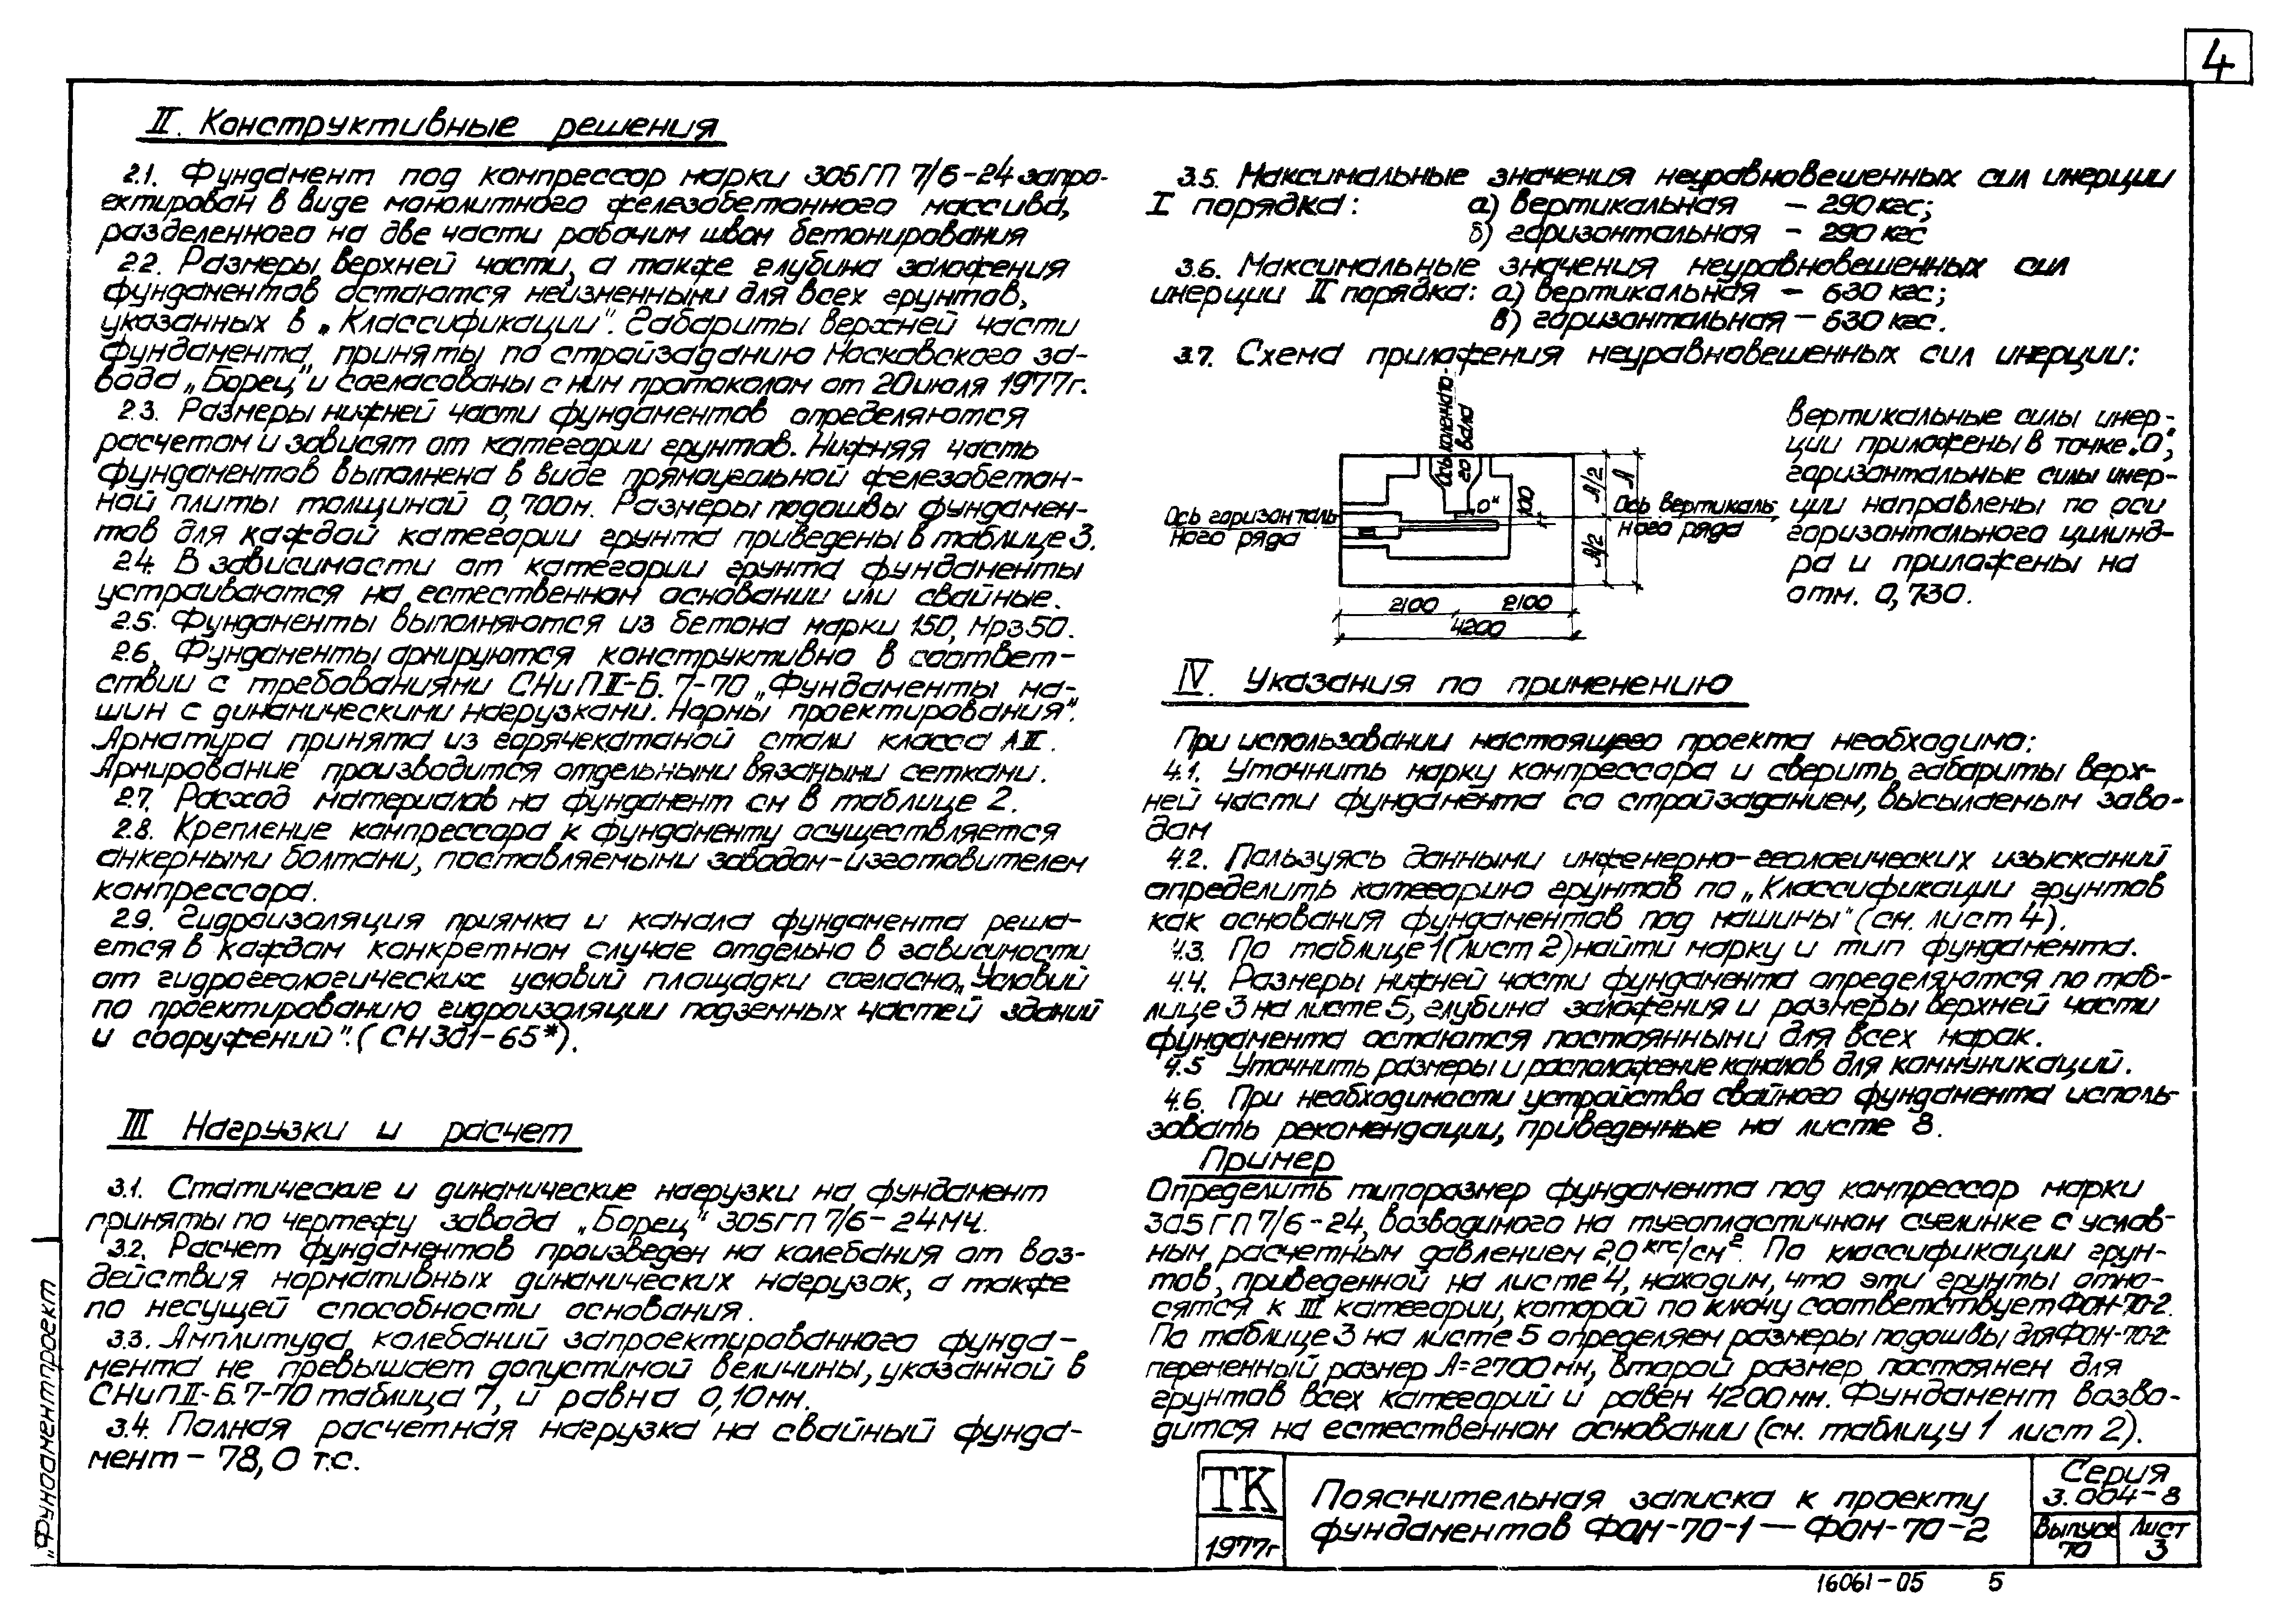 4
II. Конструктивные решения
2.1. Фундамент под компрессор марки 305ГП 7/6-24 запро-
ектирован в виде монолитного железобетонного массива,
разделенного на две части рабочим швом бетонирования
2.2. Размеры верхней части, а также глубина заложения
фундаментов остаются неизменными для всех грунтов,
указанных в „Классификации". Габариты верхней части
фундамента приняты по стройзаданию Московского за-
вода „Борец" и согласованы с ним протоколом от 20 июля 1977г.
2.3. Размеры нижней части фундаментов определяются
расчетом и зависят от категории грунтов. Нижняя часть
фундаментов выполнена в виде прямоугольной железобетон-
ной плиты толщиной 0,700м. Размеры подошвы фундамен-
тов для каждой категории грунта приведены в таблице 3.
2.4. В зависимости от категории грунта фундаменты
устраиваются на естественном основании или свайные.
2.5. Фундаменты выполняются из бетона марки 150, Мрз50.
2.6. Фундаменты армируются конструктивно в соответ-
ствии с требованиями СНиП II-Б. 7-70 „Фундаменты ма-
шин с динамическими нагрузками. Нормы проектирования".
Арматура принята из горячекатаной стали класса АII.
Армирование производится отдельными вязаными сетками.
2.7. Расход материалов на фундамент см в таблице 2.
2.8. Крепление компрессора к фундаменту осуществляется
анкерными болтами, поставляемыми заводом-изготовителем
компрессора.
2.9. Гидроизоляция приямка и канала фундамента реша-
ется в каждом конкретном случае отдельно в зависимости
от гидрогеологических условий площадки согласно „Условий
по проектированию гидроизоляции подземных частей зданий
и сооружений". (СН 301-65*).
III Нагрузки и расчет
3.1. Статические и динамические нагрузки на фундамент
приняты по чертежу завода „Борец" 305ГП 7/6-24МЧ.
3.2. Расчет фундаментов произведен на колебания от воз-
действия нормативных динамических нагрузок, а также
по несущей способности основания.
3.3. Амплитуда колебаний запроектированного фунда-
мента не превышает допустимой величины, указанной в
СНиП II-Б.7-70 таблица 7, и равна 0,10мм.
3.4. Полная расчетная нагрузка на свайный фунда-
мент - 78,0 т.с.
3.5. Максимальные значения неуравновешенных сил инерции
I порядка: а) вертикальная - 290 кгс;
б) горизонтальная - 290 кгс
3.6. Максимальные значения неуравновешенных сил
инерции II порядка: а) вертикальная - 630 кгс;
в) горизонтальная - 630 кгс.
3.7. Схема приложения неуравновешенных сил инерции:
Ось коленчато-
го вала
Ось горизонталь
ного ряда
„0"
100
А/2
А/2
А
Ось вертикаль-
ного ряда
2100 2100
4200
Вертикальные силы инер-
ции приложены в точке „0",
горизонтальные силы инер-
ции направлены по оси
горизонтального цилинд-
ра и приложены на
отм. 0,730.
IV. Указания по применению
При использовании настоящего проекта необходимо:
4.1. Уточнить марку компрессора и сверить габариты верх-
ней части фундамента со стройзаданием, высылаемым заво-
дом
4.2. Пользуясь данными инженерно-геологических изысканий
определить категорию грунтов по „Классификации грунтов
как основания фундаментов под машины" (см. лист 4).
4.3. По таблице 1 (лист 2) найти марку и тип фундамента.
4.4. Размеры нижней части фундамента определяются по таб-
лице 3 на листе 5, глубина заложения и размеры верхней части
фундамента остаются постоянными для всех марок.
4.5 Уточнить размеры и расположение каналов для коммуникаций.
4.6. При необходимости устройства свайного фундамента исполь-
зовать рекомендации, приведенные на листе 8.
Пример
Определить типоразмер фундамента под компрессор марки
305 ГП 7/6-24, возводимого на тугопластичном суглинке с услов-
ным расчетным давлением 2,0 кгс/см². По классификации грун-
тов, приведенной на листе 4, находим, что эти грунты отно-
сятся к III категории, которой по ключу соответствует ФОМ-70-2.
По таблице 3 на листе 5 определяем размеры подошвы для ФОМ-70-2
переменный размер А=2700 мм, второй размер постоянен для
грунтов всех категорий и равен 4200 мм. Фундамент возво-
дится на естественном основании (см. таблицу 1 лист 2).
„Фундаментпроект
ТК
1977г
Пояснительная записка к проекту
фундаментов ФОМ-70-1 — ФОМ-70-2
Серия
3.004-8
Выпуск
70
Лист
3
16061-05 5